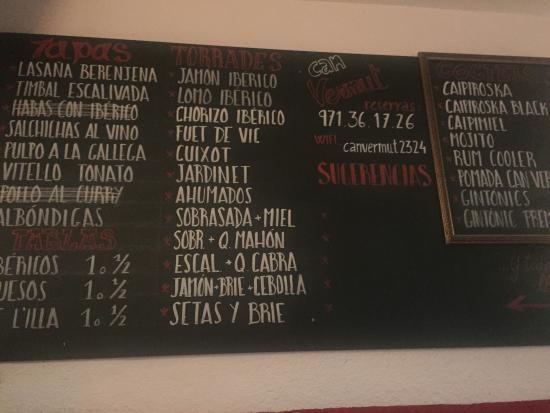 TAPAS
LASANA BERENJENA
TIMBAL ESCALIVADA
HABAS CON IBÉRICO
SALCHICHAS AL VINO
PULPO A LA GALLEGA
VITELLO TONATO
POLLO AL CURRY
ALBÓNDIGAS
TABLAS
BÉRICOS 1.0 ½
UESOS 1.0 ½
L'ILLA 1.0 ½
TORRADES
JAMÓN IBÉRICO
LOMO IBÉRICO
CHORIZO IBÉRICO
FUET DE VIC
CUIXOT
JARDINET
AHUMADOS
SOBRASADA + MIEL
SOBR. + Q. MAHÓN
ESCAL. + Q. CABRA
JAMÓN + BRIE + CEBOLLA
SETAS Y BRIE
CAN
Vermut
reservas:
971.36.17.26
WIFI: canvermut2324
SUGERENCIAS
COCTELS
CAIPIROSKA
CAIPIROSKA BLACK
CAIPIMIEL
MOJITO
RUM COOLER
POMADA CAN VER
GINTONICS
GINTONIC PREM
...Y